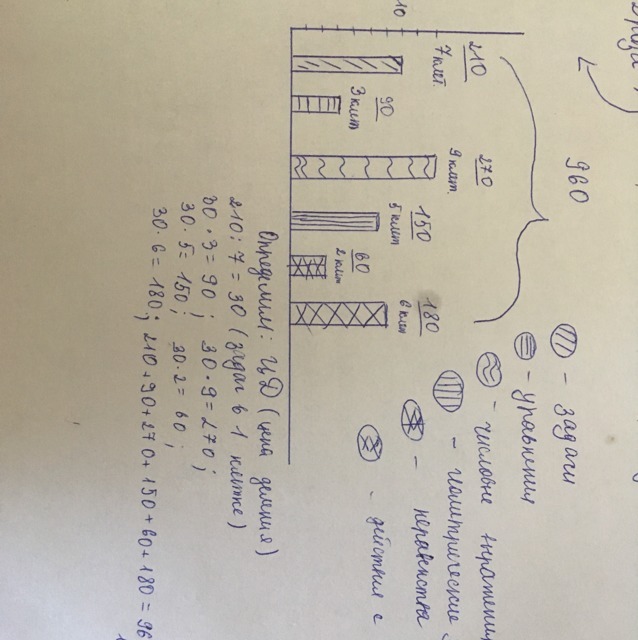 10
960
210
7 клет.
90
3 клет
270
9 клет.
150
5 клет
60
2 клет
180
6 клт
– задачи
– уравнения
– числовые выражения
– геометрические
– неравенства
– действия с
Определим: ЦД (цена деления)
210 : 7 = 30 (задач в 1 клетке)
30 · 3 = 90 ; 30 · 9 = 270 ;
30 · 5 = 150 ; 30 · 2 = 60 ;
30 · 6 = 180 ; 210 + 90 + 270 + 150 + 60 + 180 = 96